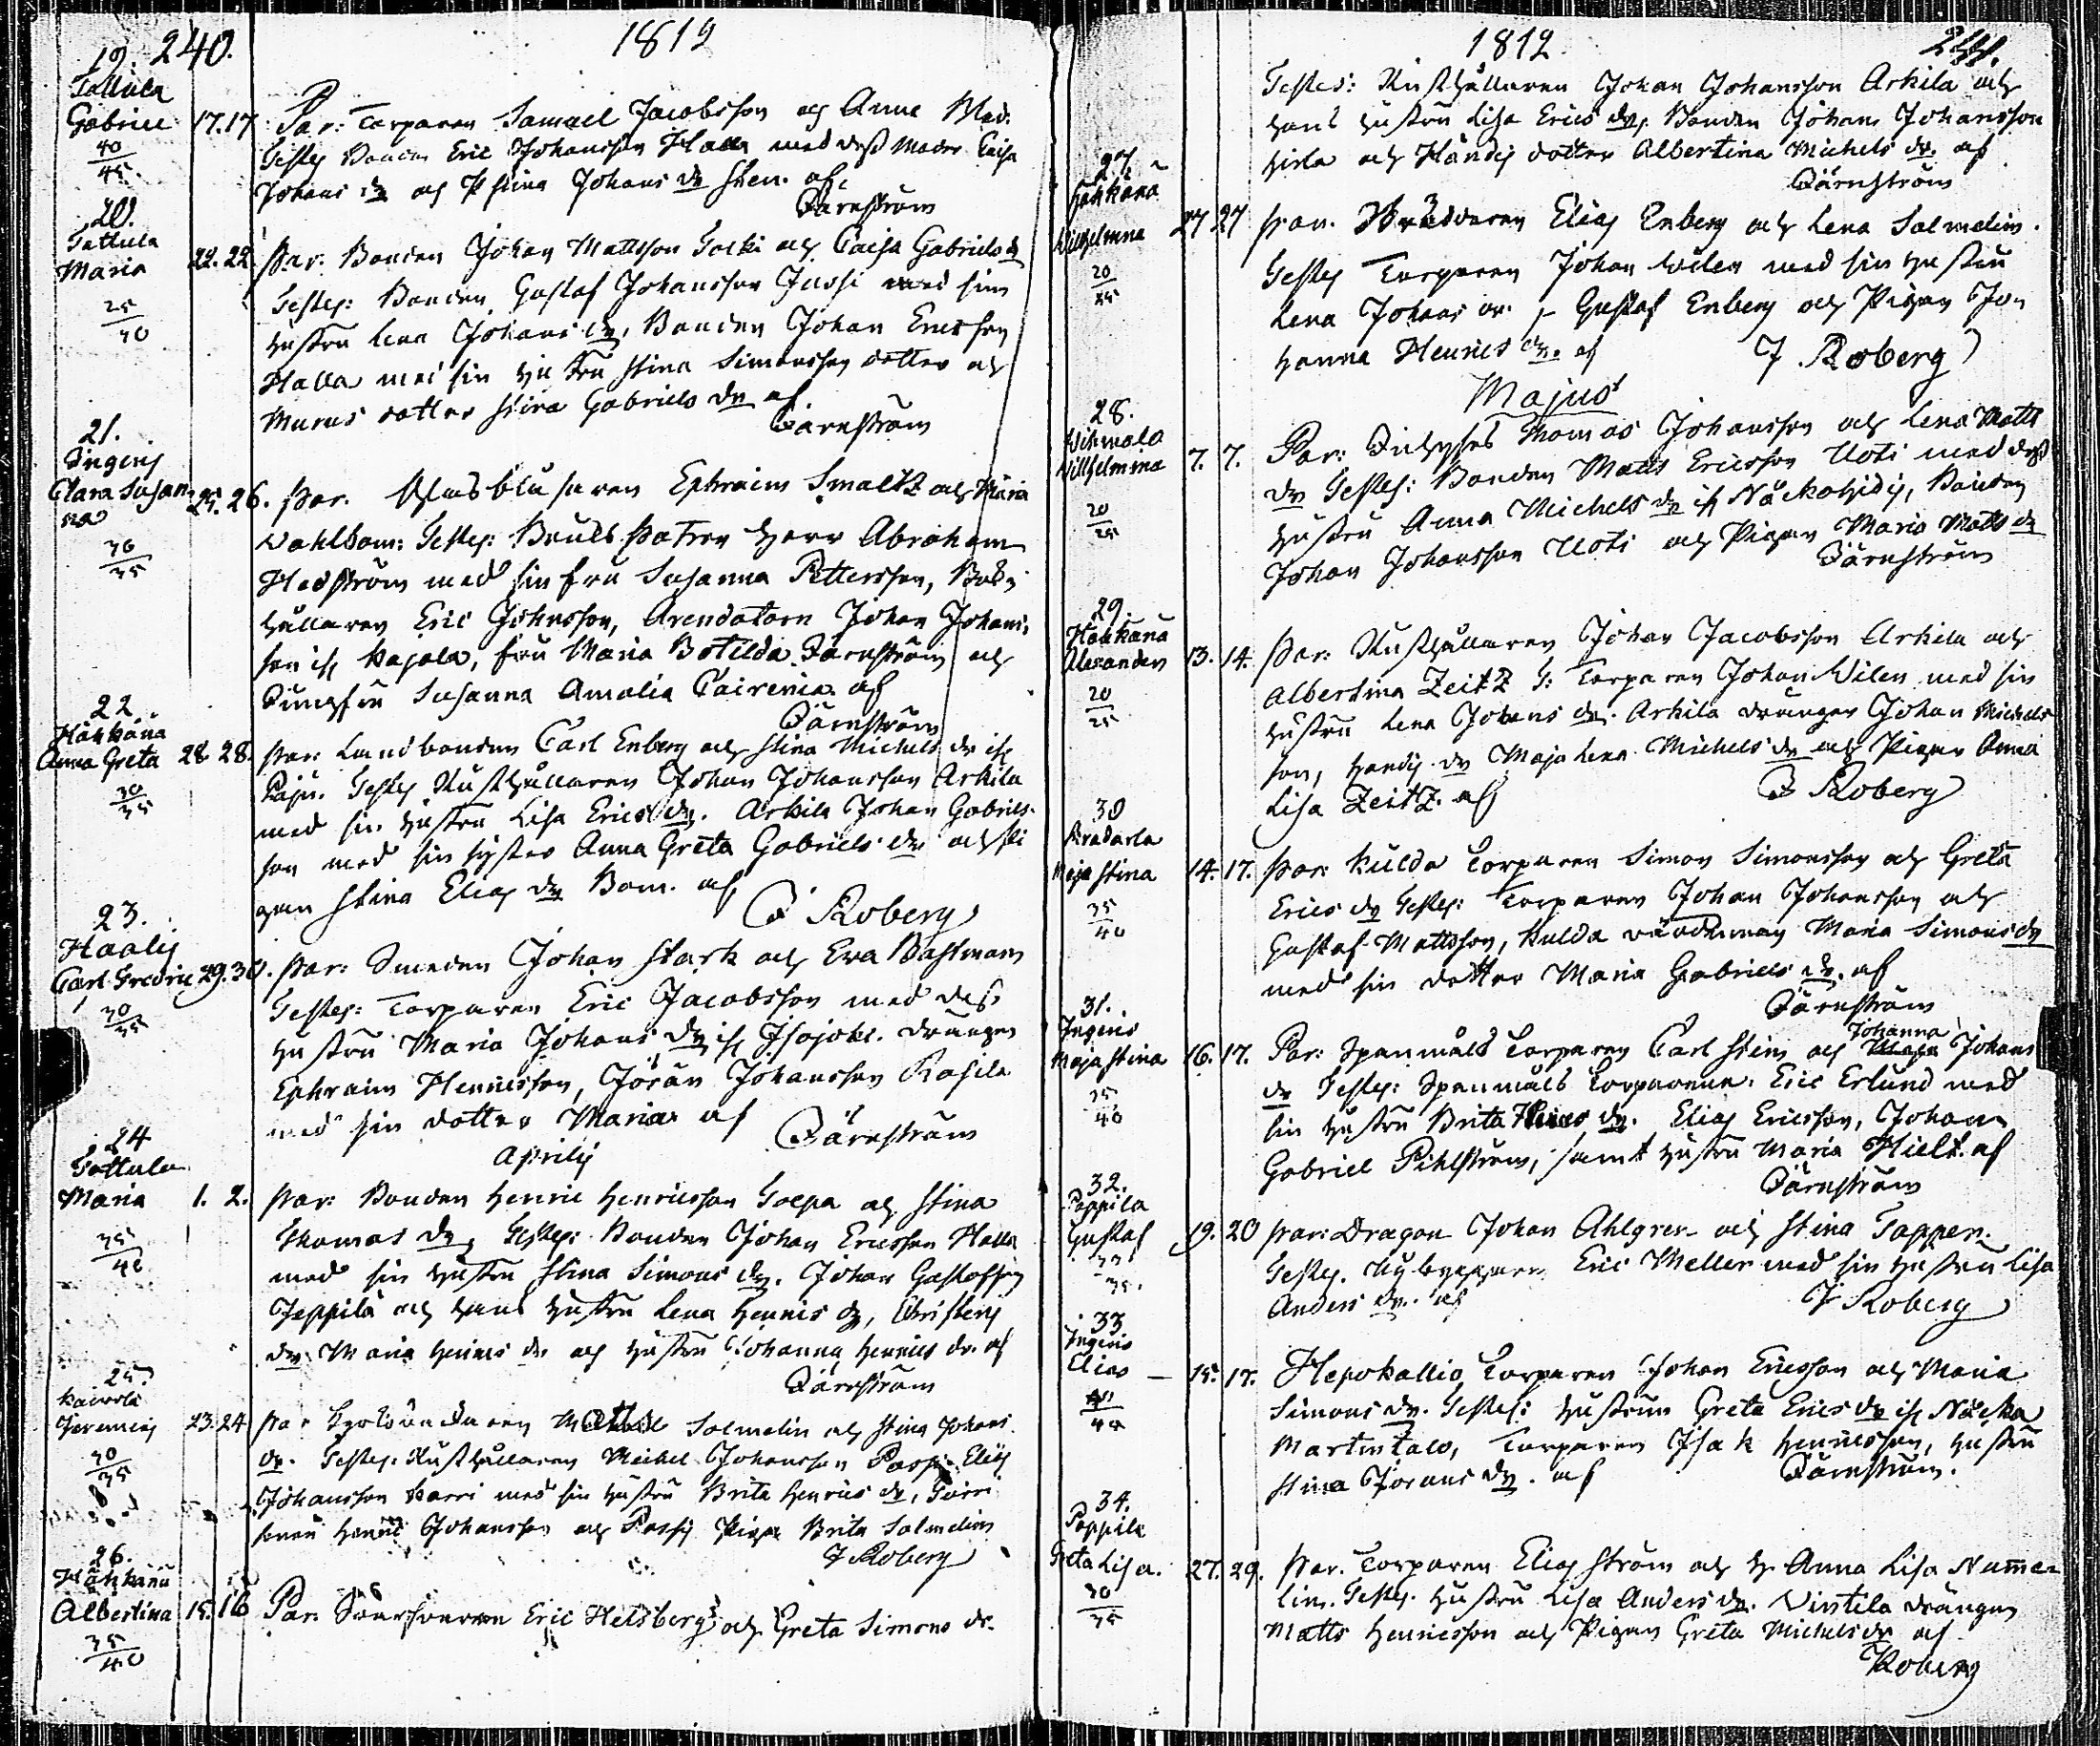 240.
1812
19.
Tottula
Gabriel 17. 17
40
45.
Par: Torparen Samuel Jacobsson och Anna Mad.
Testes Bonden Eric Johansson Halla med dess Moder Caisa
Johans dr och P. Stina Johans dr Sten. af
Bärnström
20.
Tottula
Maria 22. 22
25
40
Par: Bonden Johan Mattsson och Caisa Gabriels dr
Testes: Bonden Gustaf Johansson Jussi med sin
hustru Lena Johans dr, Bonden Johan Ericsson
Halla med sin hustru Stina Simonsson dotter och
Murus dotter Stina Gabriels dr af
Bärnström
21.
Ingeris
Clara Susan
na 25. 26.
36
35
Par. Glasblåsaren Ephraim Smaltz och Maria
Wahlbom: Testes: Bruks Patron Herr Abraham
Hedström med sin fru Susanna Pettersson,
hållaren Eric Johnsson, Arendatorn Johan Johans
son ifr Kajala, fru Maria Botilda Bärnström och
Jungfru Susanna Amalia Cairenia. af
Bärnström
22
Häkkänä
Anna Greta 28 28.
30
35
Par: Landbonden Carl Enberg och Stina Michels dr ifr
Testes Rusthållaren Johan Johansson Arkila
med sin hustru Lisa Erics dr. Arkila Johan Gabriels
son med sin syster Anna Greta Gabriels dr och Pi
gan Stina Elias dr Bom. af
J Roberg
23.
Haalis
Carl Fredric 29. 30.
30
35
Par: Smeden Johan Stark och Eva Bastman
Testes: Torparen Eric Jacobsson med dess
hustru Maria Johans dr ifr Isojoki. drängen
Ephraim Henricsson, Jöran Johansson Rasila
med sin dotter Maria af
Bärnström
Aprilis
24
Tottula
Maria 1. 2.
35
40
Par: Bonden Henric Henricsson Goepa och Stina
Thomas dr, Testes: Bonden Johan Ericsson Halla
med sin hustru Stina Simons dr. Johan Gustafsson
Jeppilä och hans hustru Lena Henrics dr, Christens
dr. Maria Henrics dr och hustru Johanna Henrics dr. af
Bärnström
25.
Kaivola
Jeremias 23. 24
30
35
Par Matts Salmelin och Stina Johans
dr. Testes: Rusthållaren Michel Johansson Elias
Johansson Karri med sin hustru Brita Henrics dr,
sonen Henric Johansson och Possij Pigan Brita Salmelin
J Roberg
26.
Häkkänä
Albertina 15. 16
35
40
Par: Svarfvaren Eric Helsberg och Greta Simons dr.
1812.
241.
Testes: Rusthållaren Johan Johansson Arkila och
hans hustru Lisa Erics dr, Bonden Johan Johansson
Hirla och Handij dotter Albertina Michels dr. af
Bärnström
27
Häkkänä
Wilhelmina 27 27
20
25
Par. Elias Enberg och Lena Salmelin.
Testes Torparen Johan Wilen med sin hustru
Lena Johans dr. Gustaf Enberg och Pigan Jo
hanna Henrics dr. af
J Roberg
Majus
28.
Wilhelmina 7. 7.
20
25
Par: Inhyses Thomas Johansson och Lena Matts
dr Testes: Bonden Matts Ericsson Uoti med dess
hustru Anna Michels dr ifr Näckohidis, Bonden
Johan Johansson Uoti och Pigan Maria Matts dr
Bärnström
29.
Häkkänä
Alexander 13. 14.
20
25
Par: Rusthållaren Johan Jacobsson Arkila och
Albertina Zeitz T: Torparen Johan Wilen med sin
hustru Lena Johans dr. Arkila drängen Johan Michels
son, Handij dr Maja Lena Michels dr och Pigan Anna
Lisa Zeitz. af
J Roberg
30
Maja Stina 14. 17.
35
40
Par: Kulda Torparen Simon Simonsson och Greta
Erics dr Testes: Torparen Johan Johansson och
Gustaf Mattsson, Kulda värdinnan Maria Simons dr
med sin dotter Maria Gabriels dr. af
Bärnström
31.
Ingeris
Maja Stina 16. 17.
35
40
Johanna
Par: Spanmåls Torparen Carl Stein och Maja Johans
dr Testes: Spanmåls Torparena Eric Erlund med
sin hustru Brita dr. Elias Ericsson, Johan
Gabriel Pihlström, samt hustru Maria Hielt. af
Bärnström
32.
Poppila
Gustaf 19. 20
35.
Par: Dragon Johan Ahlgren och Stina Tapper.
Testes. Nybyggaren Eric Meller med sin hustru Lisa
Anders dr. af
J Roberg
33
Ingeris
Elias — 15. 17.
40
Hepokallio Torparen Johan Ericsson och Maria
Simons dr. Testes: hustrun Greta Erics dr ifr Näcka
Martintalo, Torparen Isak Henricsson, hustru
Stina Jörans dr. af
Bärnström.
34.
Poppila
Greta Lisa. 27. 29.
30
35
Par. Torparen Elias Ström och H. Anna Lisa Numme
lin. Testes. hustru Lisa Anders dr. Virtila drängen
Matts Henricsson och Pigan Greta Michels dr af
Roberg